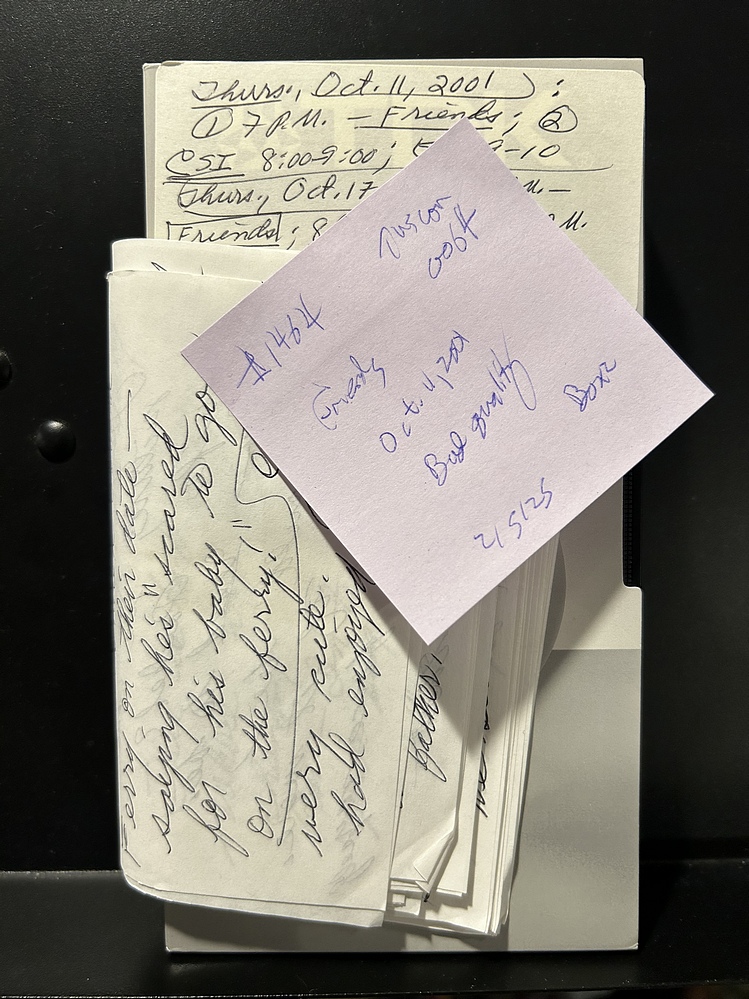 Thurs., Oct. 11, 2001 :
① 7 P.M. – Friends; ②
CSI 8:00-9:00; 9-10
Thurs., Oct. 17 M. –
Friends; 8 M.
#1464
Friends
Oct. 11, 2001
Bad quality
Box 2
2/5/25
Ferry on their date —
saying he's "scared
for his baby to go
on the ferry!"
very cute.
had enjoyed